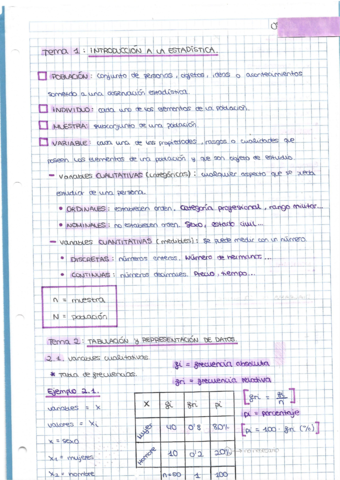 Tema 1: INTRODUCCIÓN A LA ESTADÍSTICA
POBLACIÓN: conjunto de personas, objetos, ideas o acontecimientos
sometido a una observación estadística.
INDIVIDUO: cada uno de los elementos de la población.
MUESTRA: subconjunto de una población.
VARIABLE: cada una de las propiedades, rasgos o cualidades que
poseen los elementos de una población y que son objeto de estudio.
- Variables CUALITATIVAS (categóricas): cualquier aspecto que se pueda
estudiar de una persona.
• ORDINALES: establecen orden. Categoría profesional, rango militar...
• NOMINALES: no establecen orden. Sexo, estado civil...
- Variables CUANTITATIVAS (medibles): se puede medir con un número
• DISCRETAS: números enteros. Número de hermanos...
• CONTINUAS: números decimales. Precio, tiempo...
n = muestra
N = población
Tema 2: TABULACIÓN y REPRESENTACIÓN DE DATOS
2.1. Variables cualitativas
fi = frecuencia absoluta
* Tabla de frecuencias
fri = frecuencia relativa
Ejemplo 2.1.
variables = X
valores = Xi
X = sexo
X1 = mujeres
X2 = hombre
X fi fri pi
Mujer 40 0'8 80%
Hombre 10 0'2 20%
n=50 1 100
[fri = fi/n]
pi = porcentaje
[pi = 100 · fri (%)]